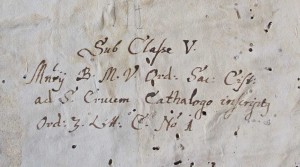 Sub Classe V.
Mnrÿ B. M. V. Ord: Sac: Cist:
ad S. Crucem Cathalogo inscript,
Ord: 3. Litt: C. No 1